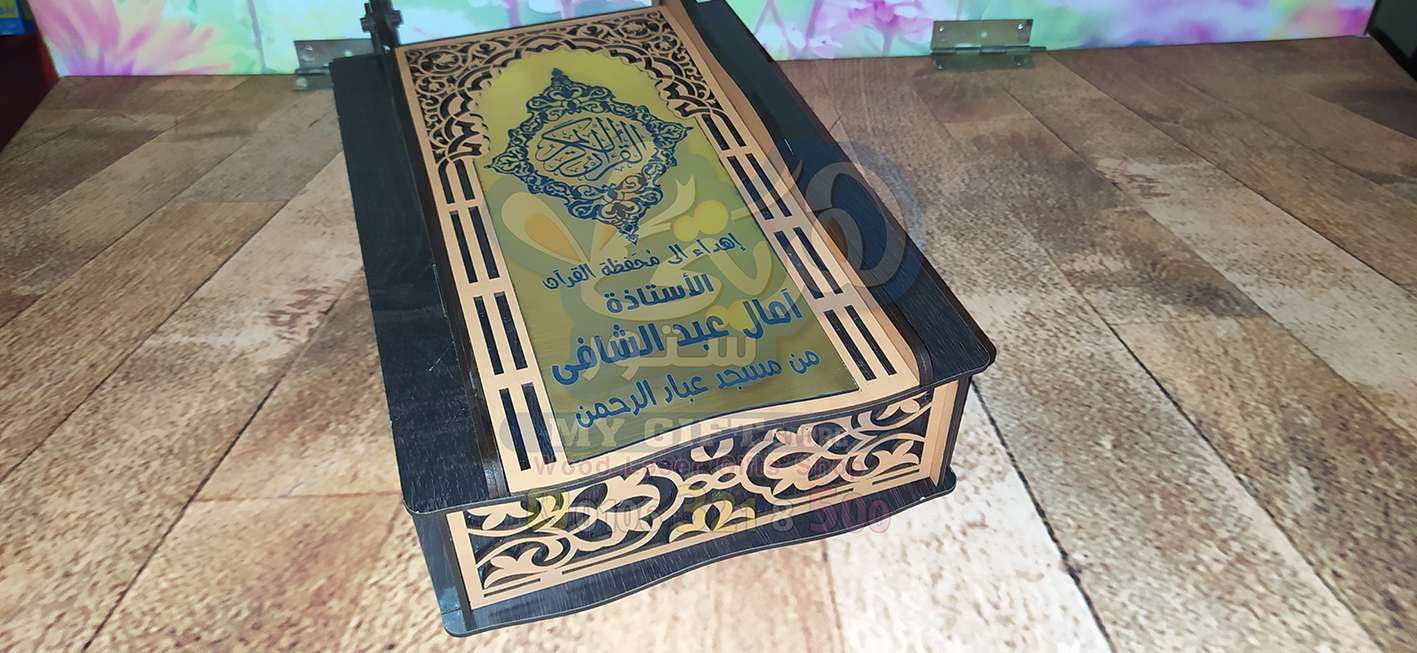 القرآن الكريم
إهداء الى مُحَفظة القرآن
الأستاذة
امال عبد الشافى
من مسجد عباد الرحمن
MY GIFT
Wood Laser